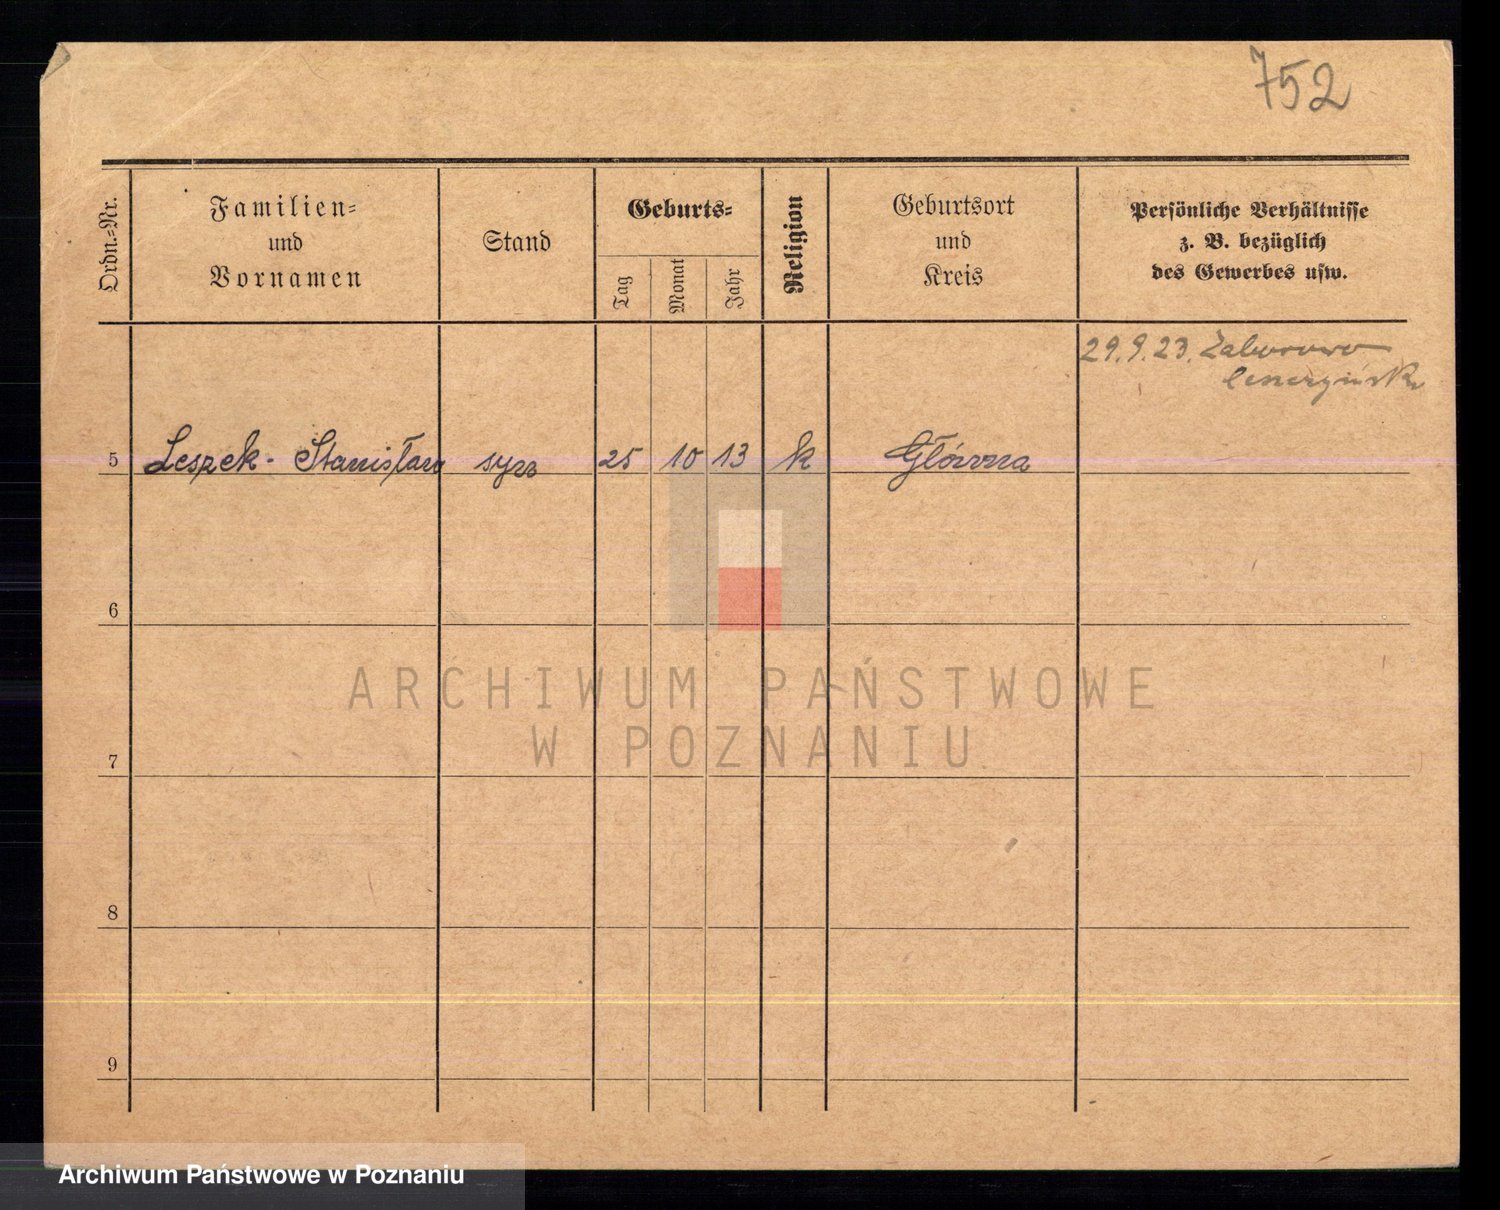 752
Ordn.-Nr.
Familien-
und
Vornamen
Stand
Geburts-
Tag
Monat
Jahr
Religion
Geburtsort
und
Kreis
Persönliche Verhältnisse
z. B. bezüglich
des Gewerbes usw.
29.9.23. Zaborowo
5 Leszek - Stanisław syn 25 10 13 k Główna
6
7
8
9
ARCHIWUM PAŃSTWOWE
W POZNANIU
Archiwum Państwowe w Poznaniu